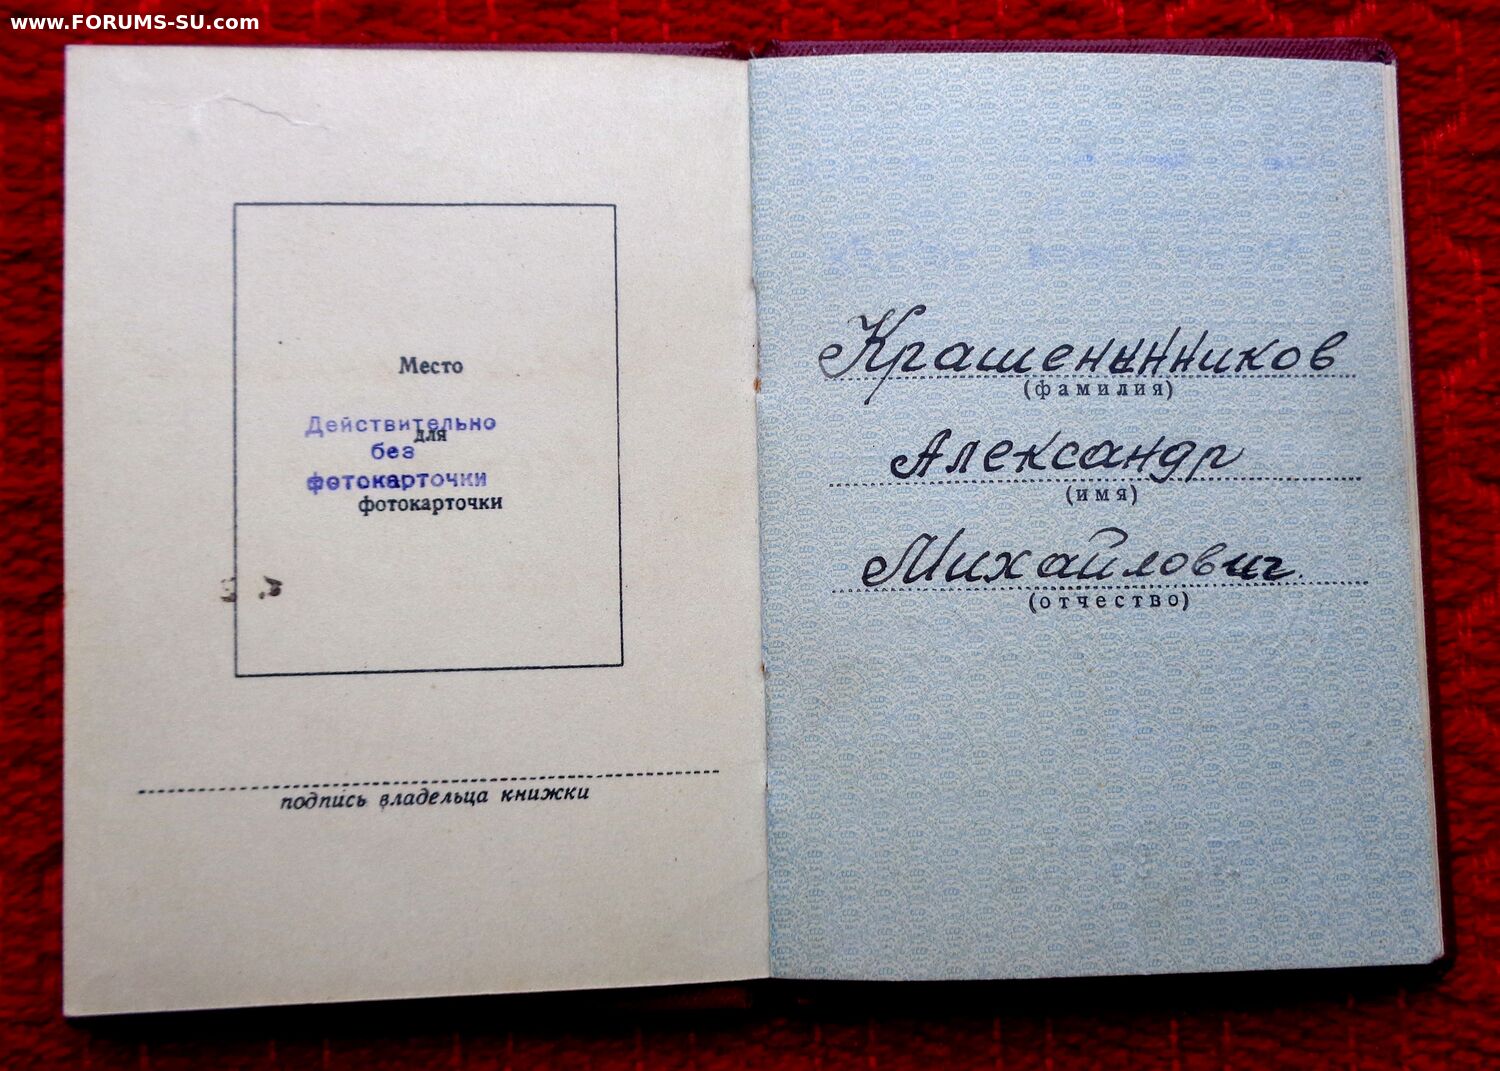 www.FORUMS-SU.com
Место
Действительно
для
без
фотокарточки
фотокарточки
подпись владельца книжки
Крашенинников
(фамилия)
Александр
(имя)
Михайлович
(отчество)